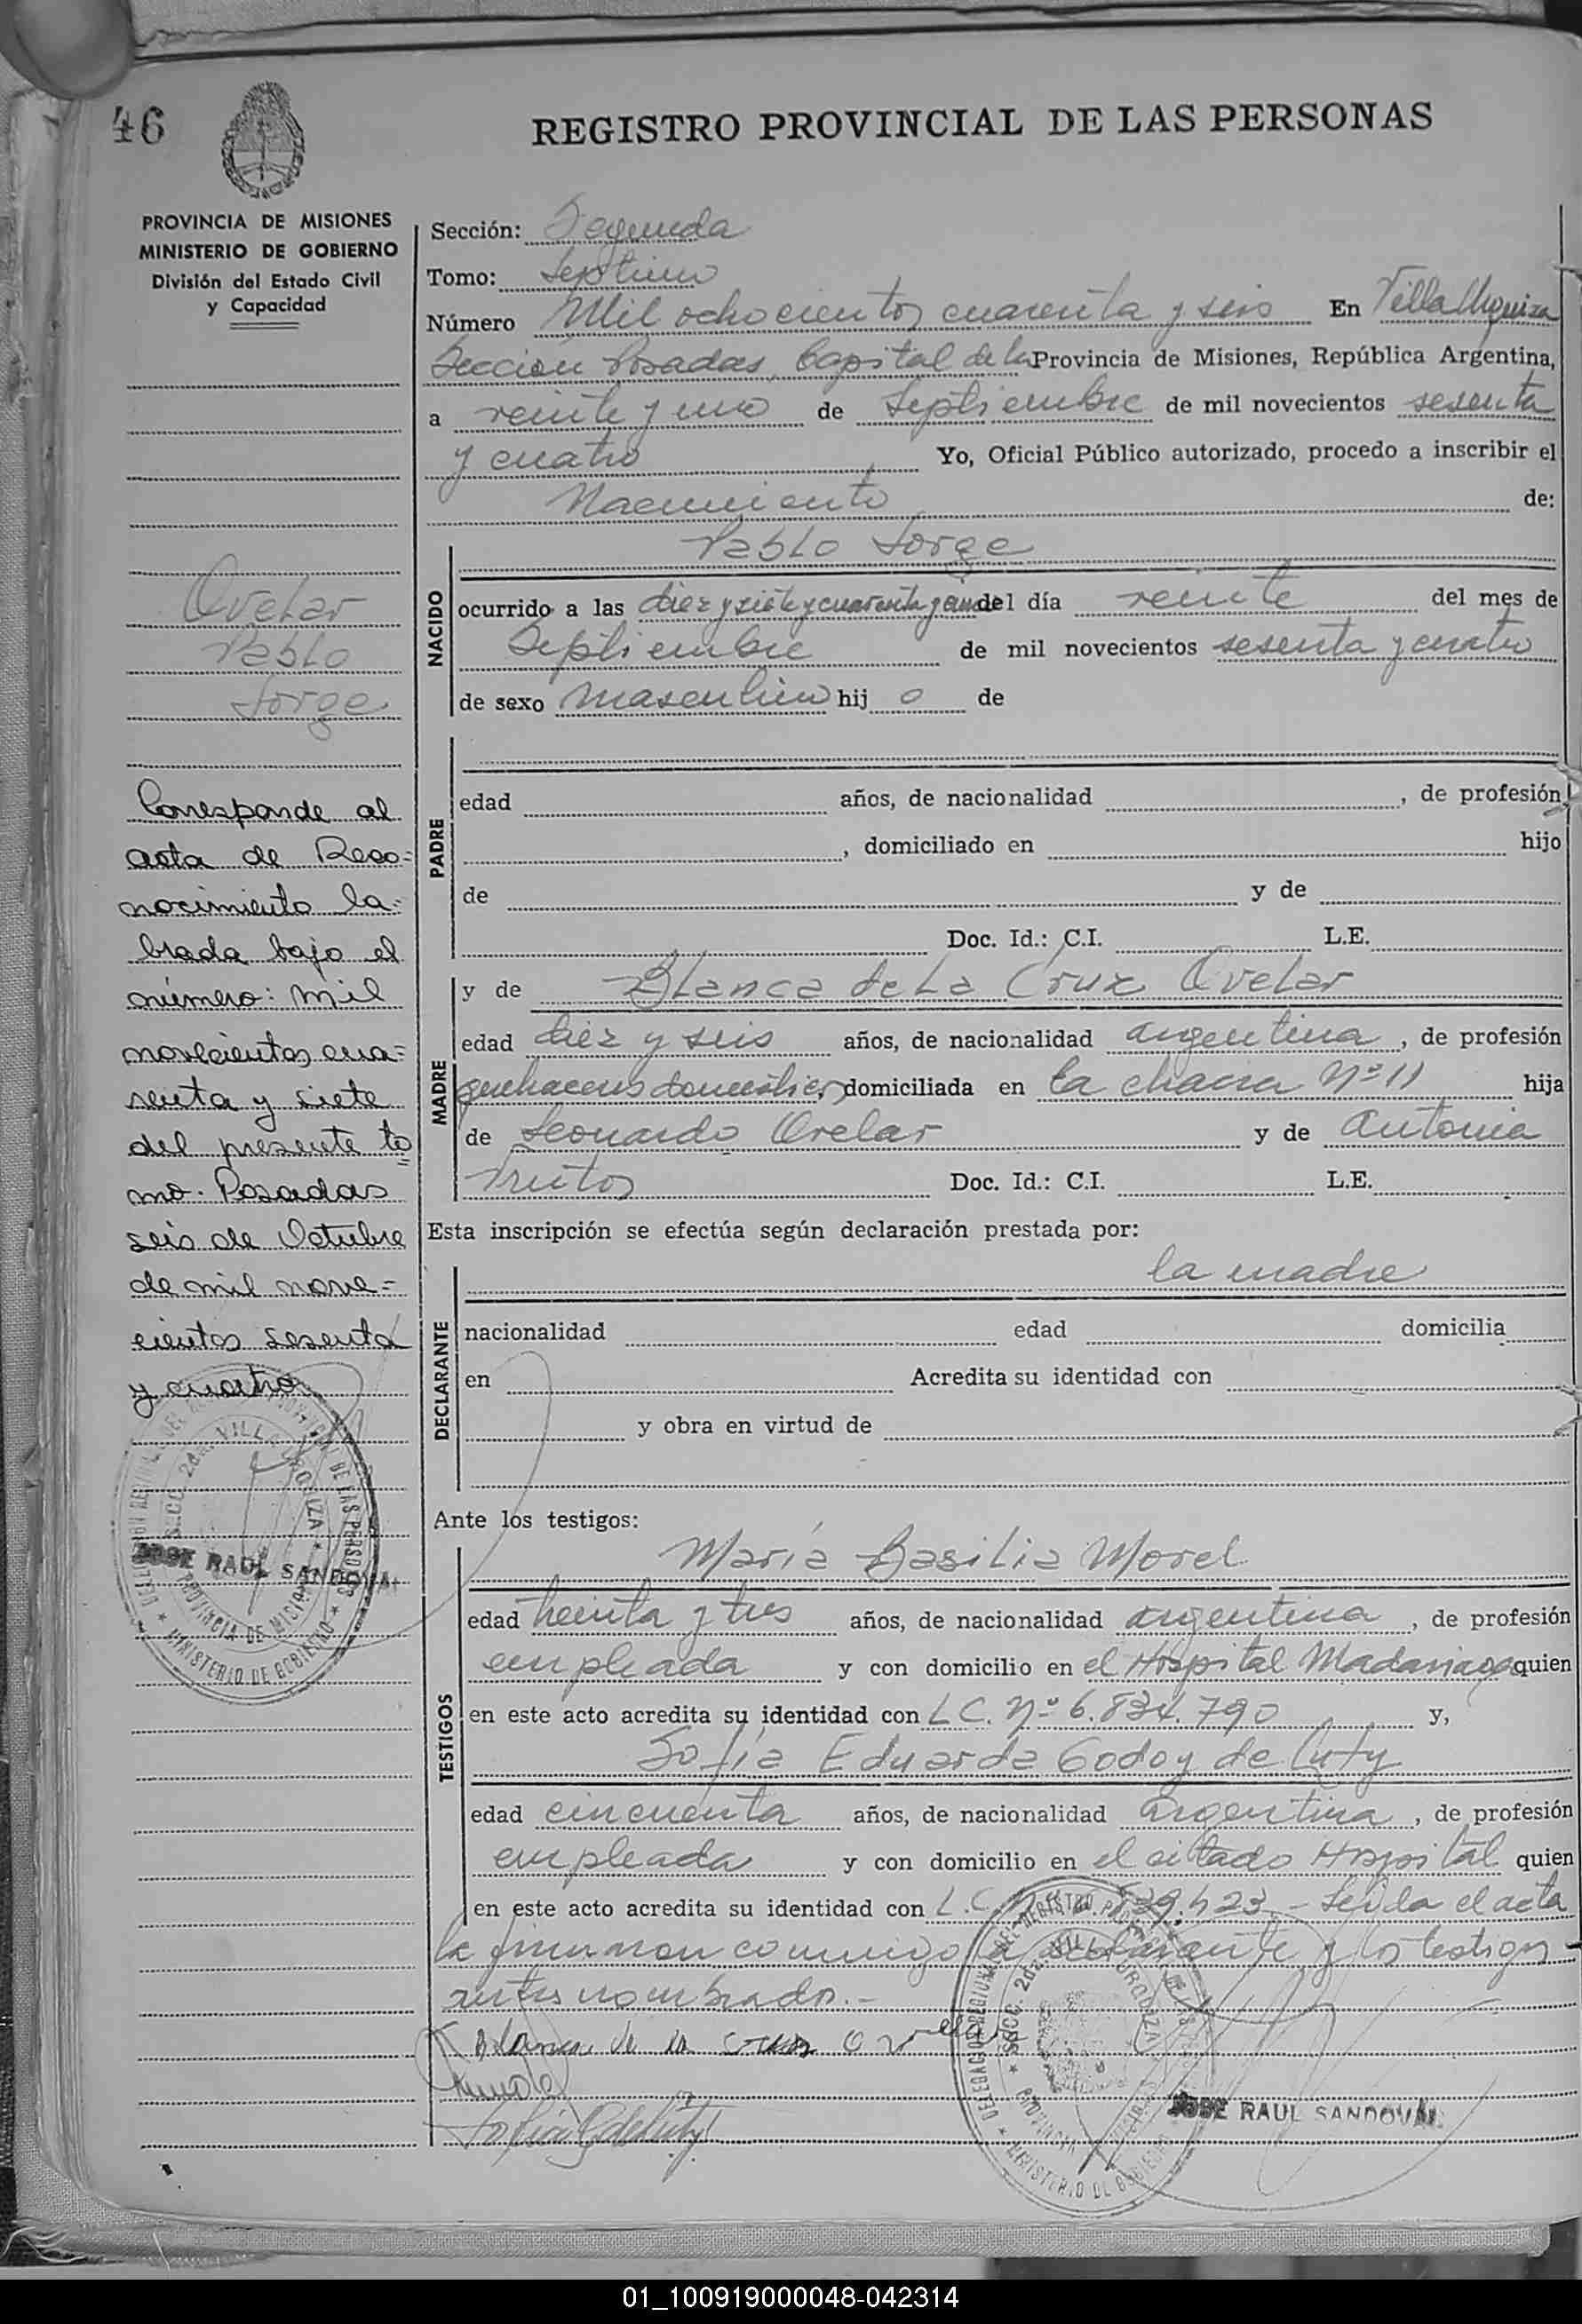 46
REGISTRO PROVINCIAL DE LAS PERSONAS
PROVINCIA DE MISIONES
MINISTERIO DE GOBIERNO
División del Estado Civil
y Capacidad
Ovelar
Pablo
Jorge
Corresponde al
acta de Reco=
nocimiento la=
brada bajo el
número: mil
novecientos cua=
renta y siete
del presente to=
mo. Posadas
seis de Octubre
de mil nove=
cientos sesenta
y cuatro
JOSE RAUL SANDOVAL
Sección: Segunda
Tomo: Septimo
Número Mil ochocientos cuarenta y seis En Villa Urquiza
Sección Posadas, Capital de la Provincia de Misiones, República Argentina,
a veinte y uno de Septiembre de mil novecientos sesenta
y cuatro Yo, Oficial Público autorizado, procedo a inscribir el
Nacimiento de:
Pablo Jorge
NACIDO
ocurrido a las diez y siete y cuarenta y cinco del día veinte del mes de
Septiembre de mil novecientos sesenta y cuatro
de sexo masculino hij o de
PADRE
edad años, de nacionalidad , de profesión
, domiciliado en hijo
de y de
Doc. Id.: C.I. L.E.
MADRE
y de Blanca de La Cruz Ovelar
edad diez y seis años, de nacionalidad argentina, de profesión
quehaceres domésticos, domiciliada en la chacra Nº 11 hija
de Leonardo Ovelar y de Antonia
Frutos Doc. Id.: C.I. L.E.
Esta inscripción se efectúa según declaración prestada por:
la madre
DECLARANTE
nacionalidad edad domicilia
en Acredita su identidad con
y obra en virtud de
Ante los testigos:
TESTIGOS
María Basilia Morel
edad treinta y tres años, de nacionalidad argentina, de profesión
empleada y con domicilio en el Hospital Madariaga quien
en este acto acredita su identidad con L.C. Nº 6.834.790 y,
Sofía Eduarda Godoy de
edad cincuenta años, de nacionalidad argentina, de profesión
empleada y con domicilio en el citado Hospital quien
en este acto acredita su identidad con L.C. 839.423.- Leída el acta
la firman conmigo la declarante y los testigos
antes nombrados.-
Blanca de la cruz Ovelar
JOSE RAUL SANDOVAL
DELEGACION REGIONAL DEL REGISTRO PROVINCIAL DE LAS PERSONAS
SECC. 2da. VILLA URQUIZA
PROVINCIA DE MISIONES
MINISTERIO DE GOBIERNO
01_100919000048-042314